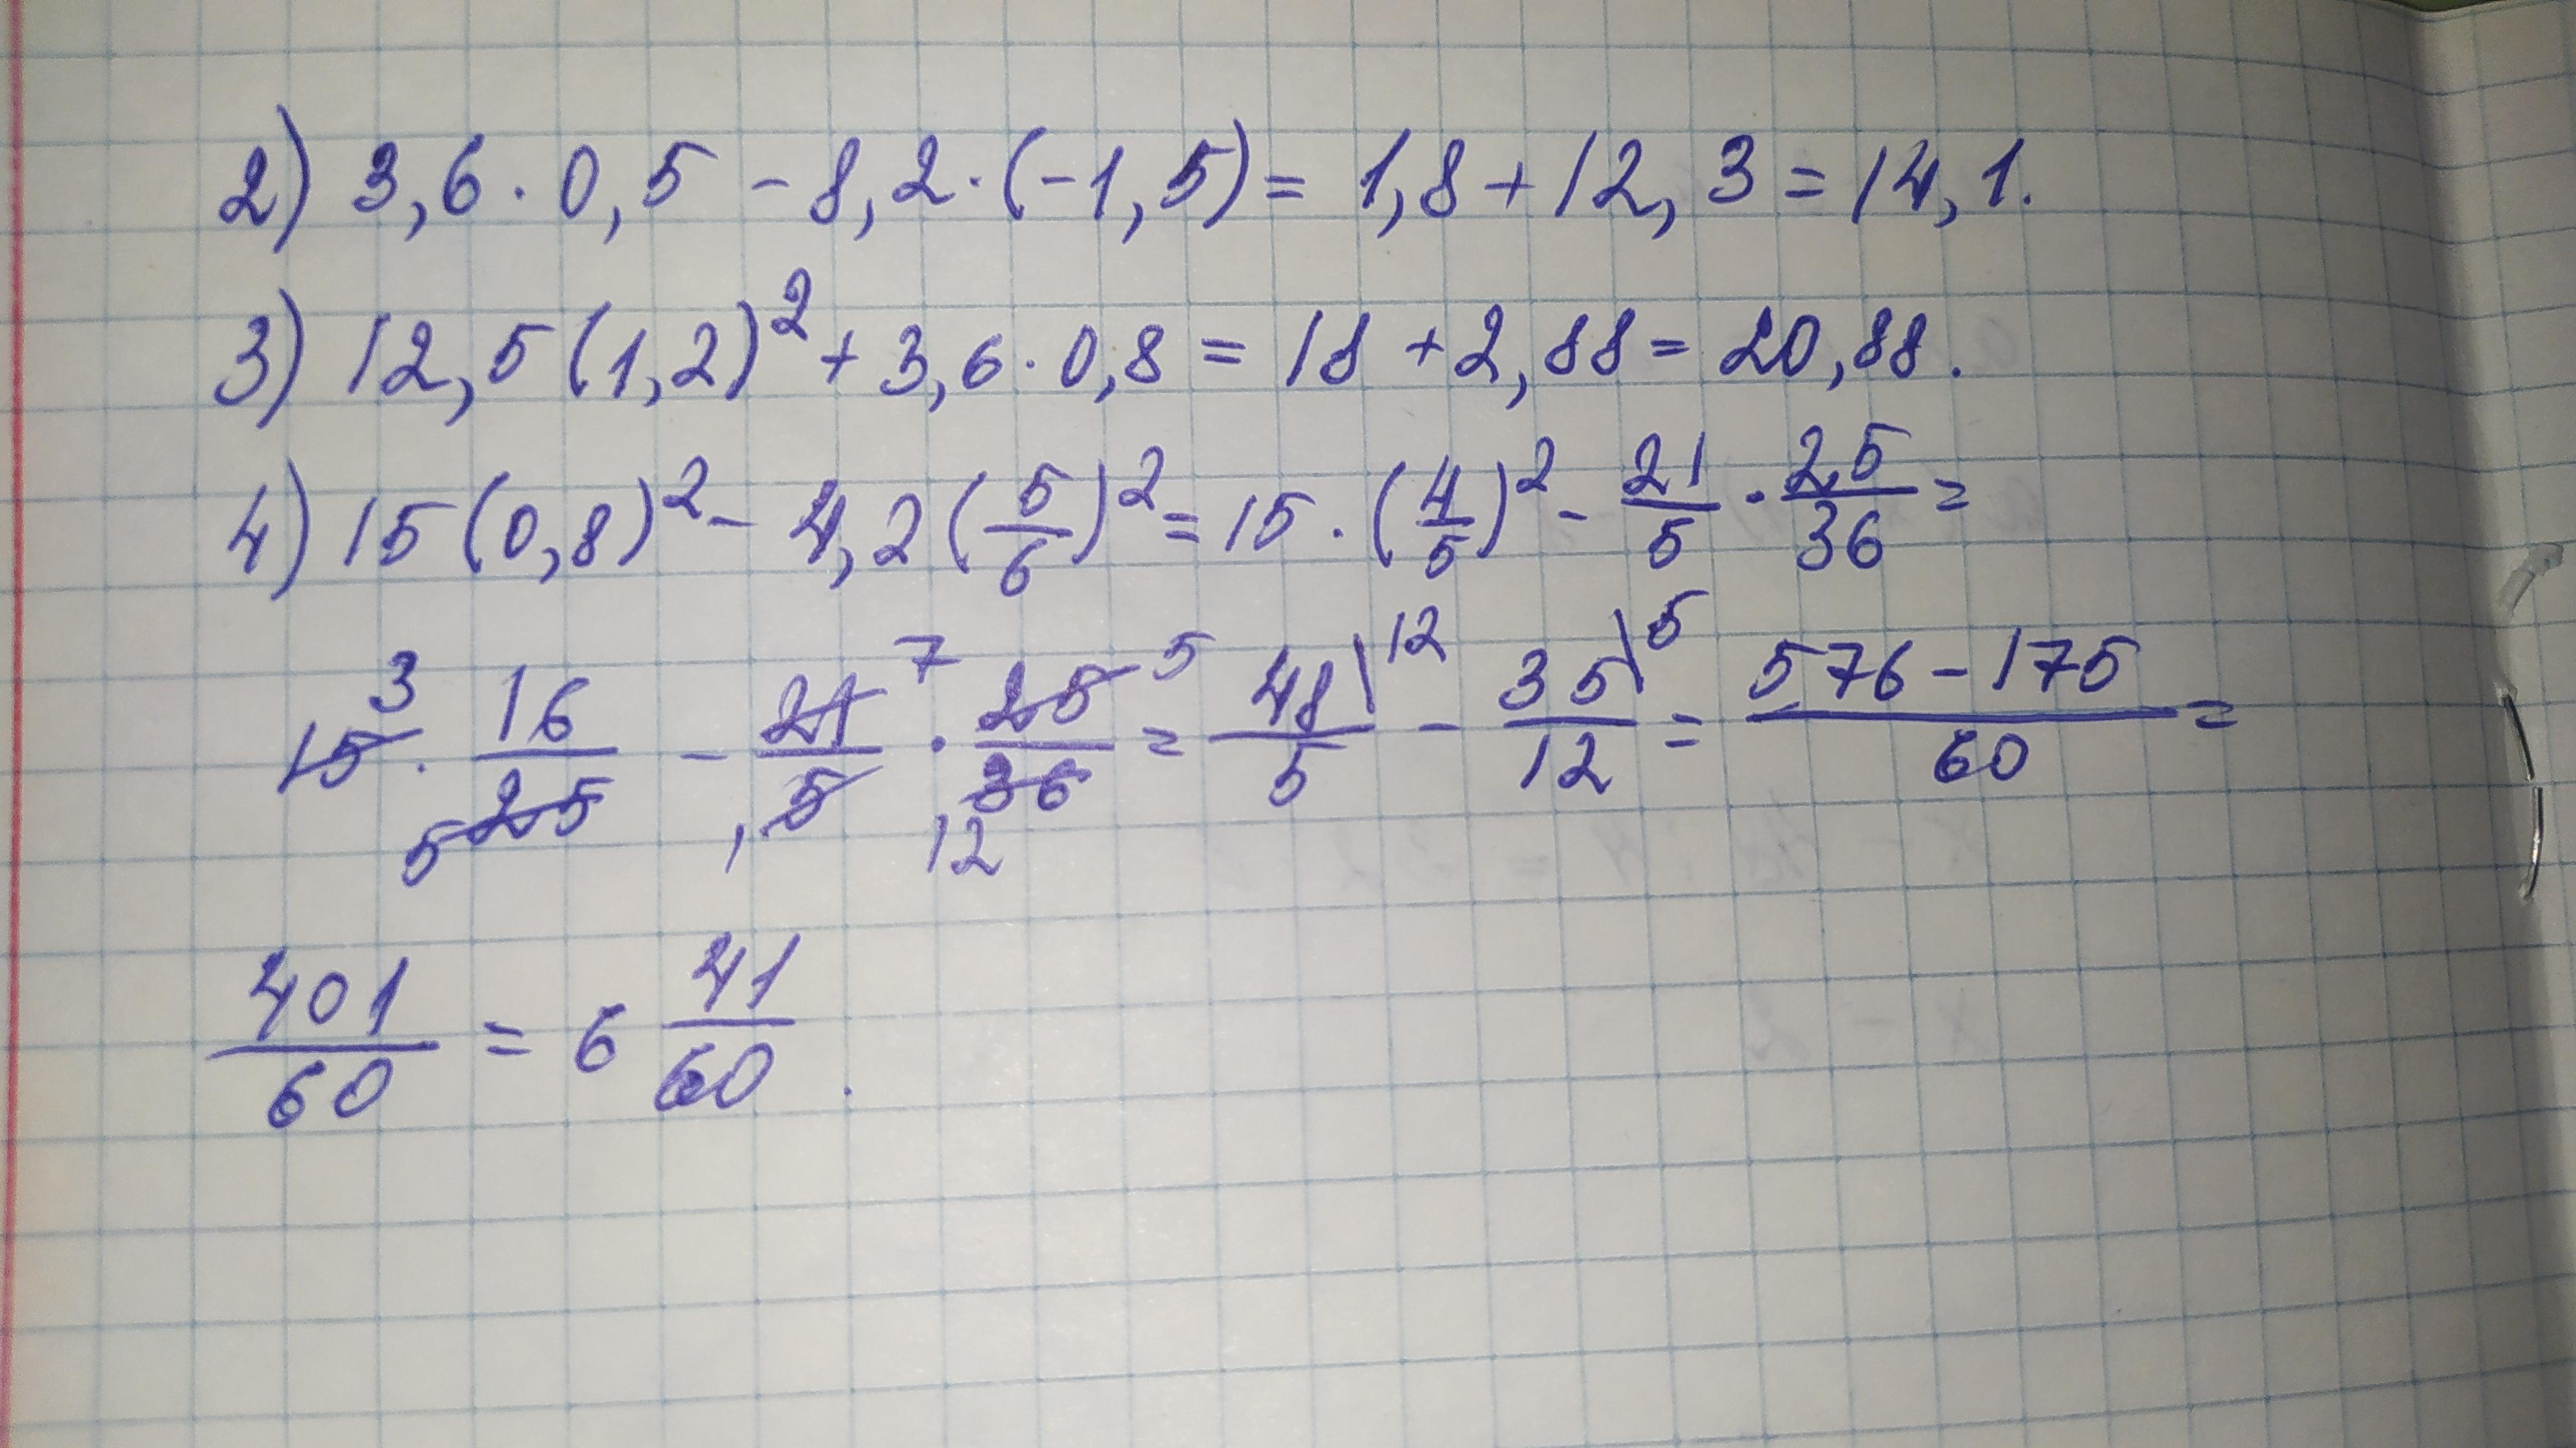 2) 3,6 · 0,5 - 8,2 · (-1,5) = 1,8 + 12,3 = 14,1.
3) 12,5 (1,2)² + 3,6 · 0,8 = 18 + 2,88 = 20,88.
4) 15 (0,8)² - 4,2 (5/6)² = 15 · (4/5)² - 21/5 · 25/36 =
15 3 · 16/25 5 - 21 7/5 1 · 25 5/36 12 = 48/5 \12 - 35/12 \5 = (576 - 175)/60 =
401/60 = 6 41/60.